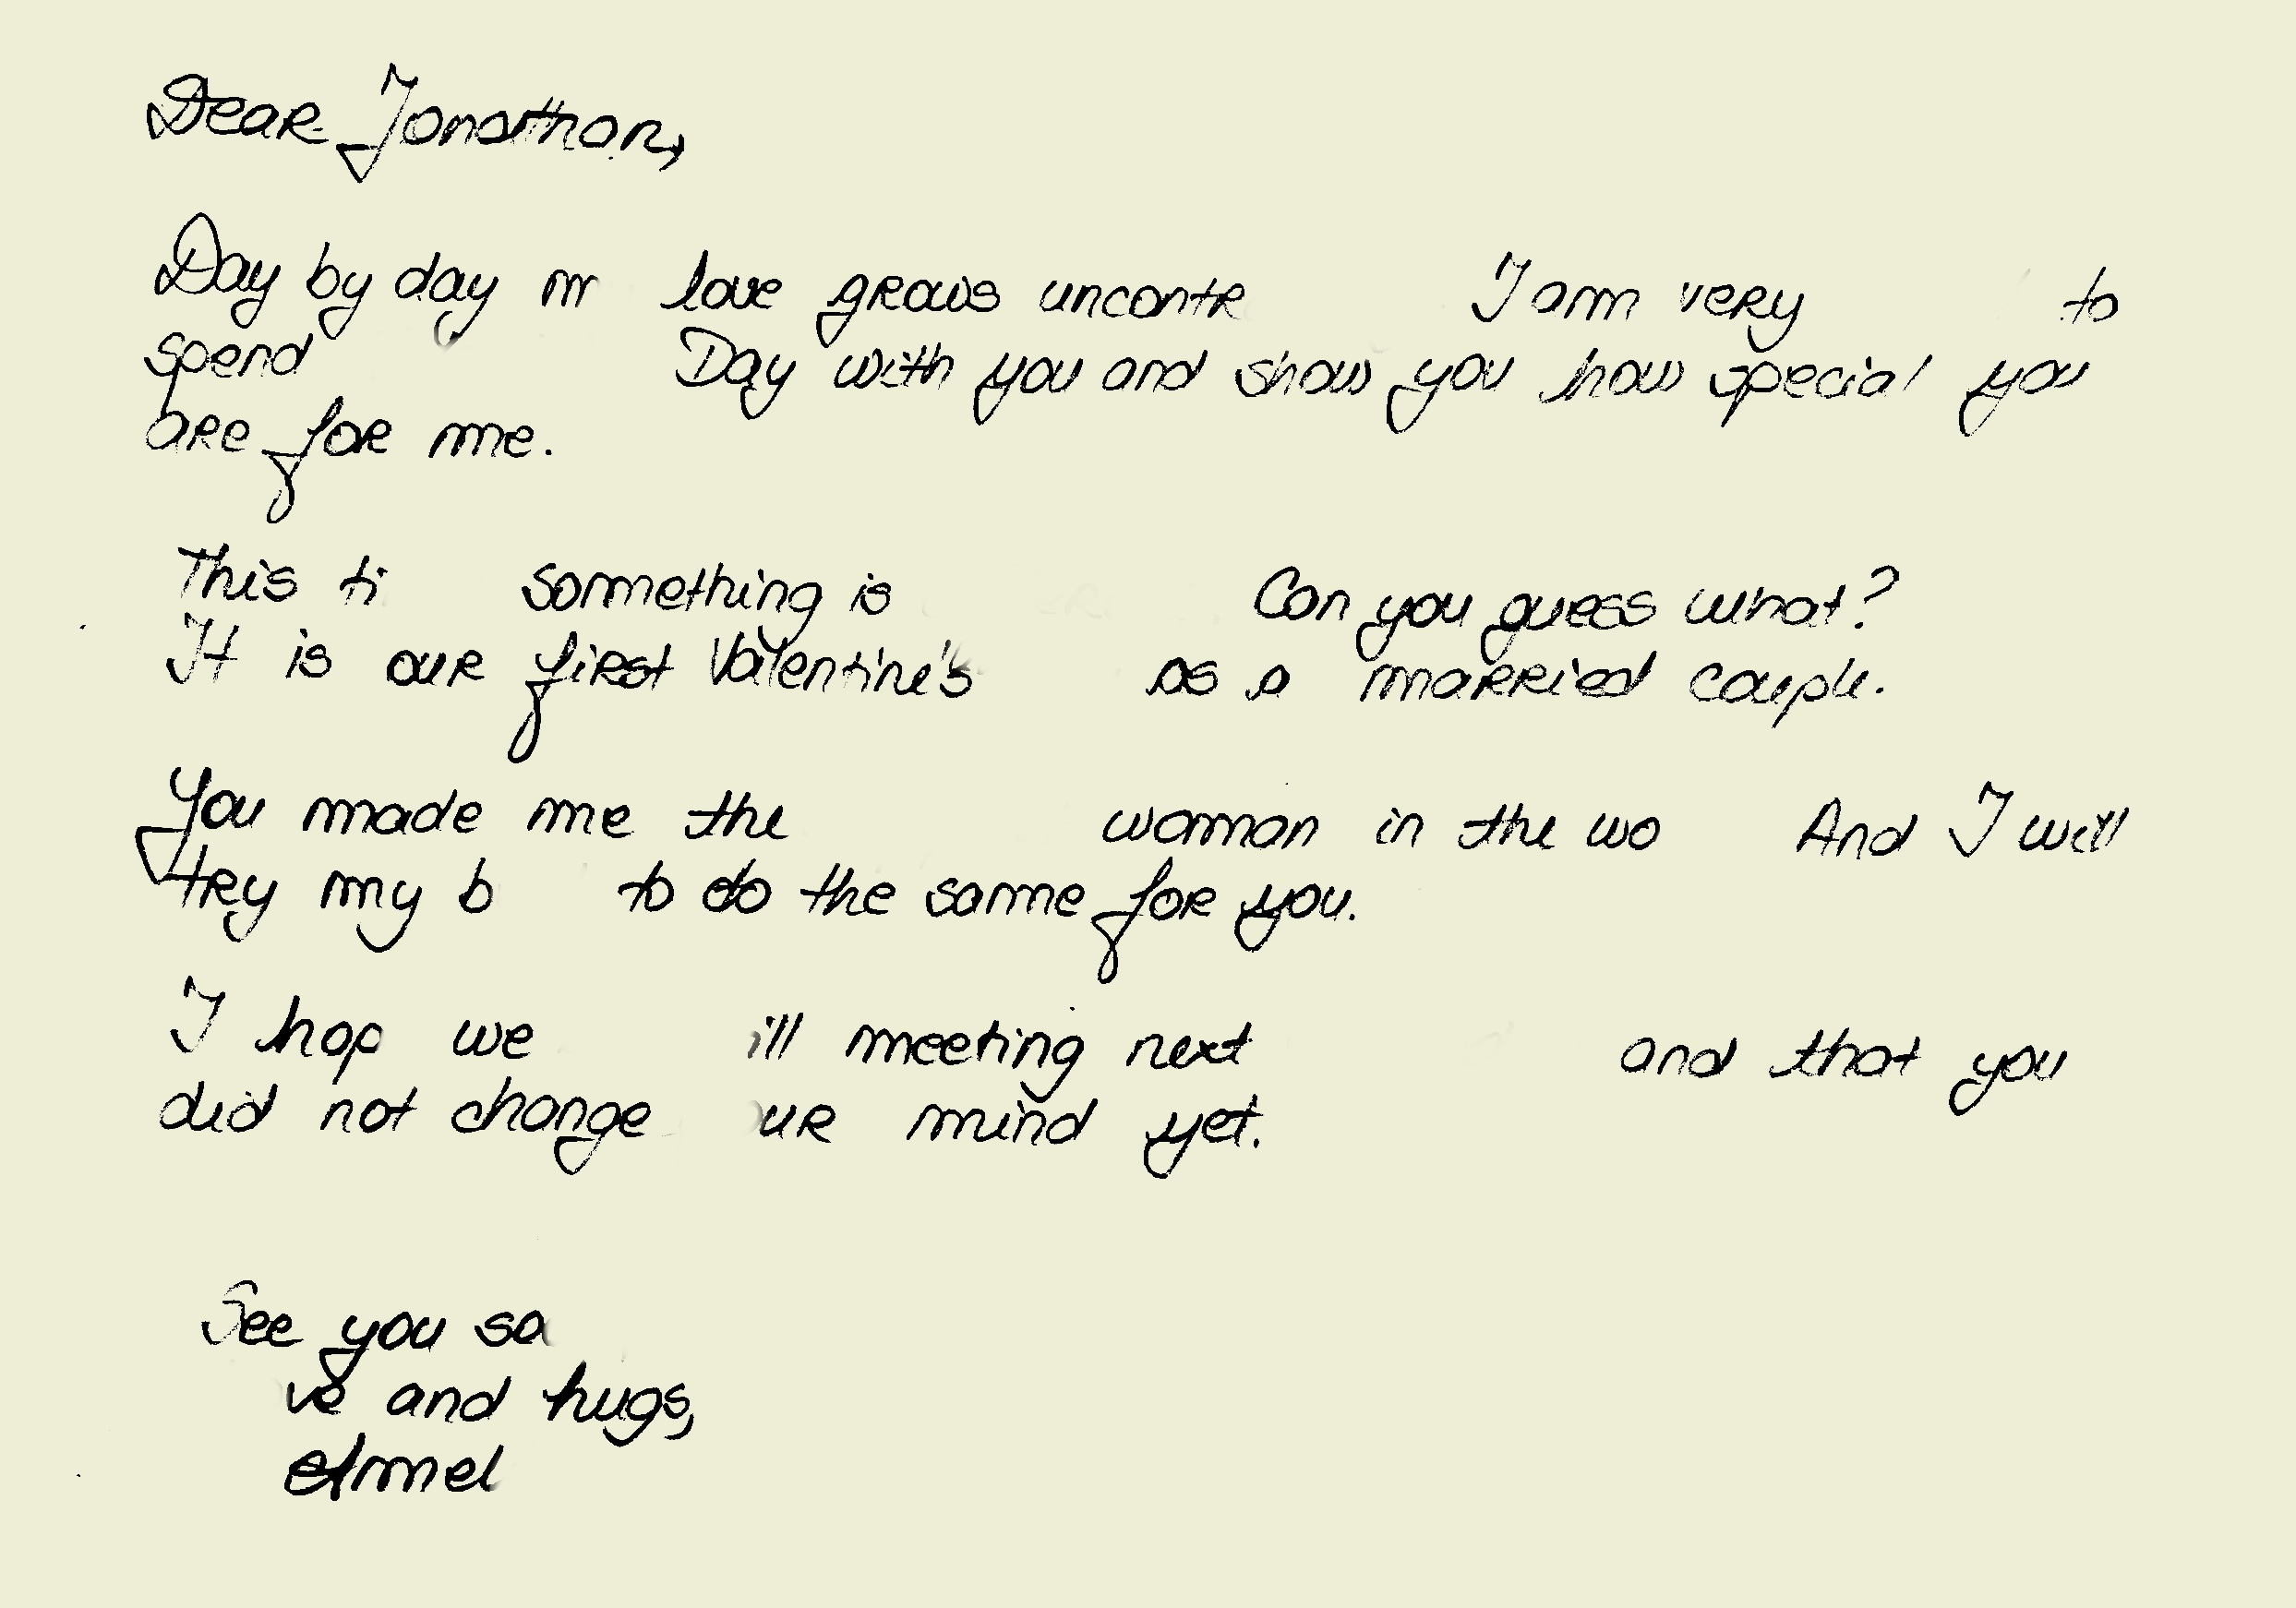 Dear Jonathan,
Day by day m love grows uncontr I am very to
spend Day with you and show you how special you
are for me.
This ti something is Can you guess what?
It is our first Valentine's as a married couple.
You made me the woman in the wo And I will
try my b to do the same for you.
I hop we ill meeting next and that you
did not change ur mind yet.
See you so
ve and hugs,
Armel